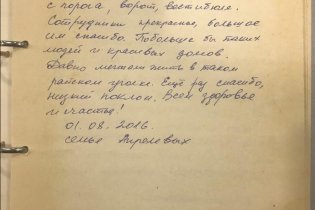 с порога, ворот, вестибюле.
Сотрудники прекрасные, большое
им спасибо. Побольше бы таких
людей и красивых домов.
Давно мечтали жить в таком
райском уголке. Ещё раз спасибо,
низкий поклон. Всем здоровья
и счастья!
01.08.2016.
семья Апрелевых